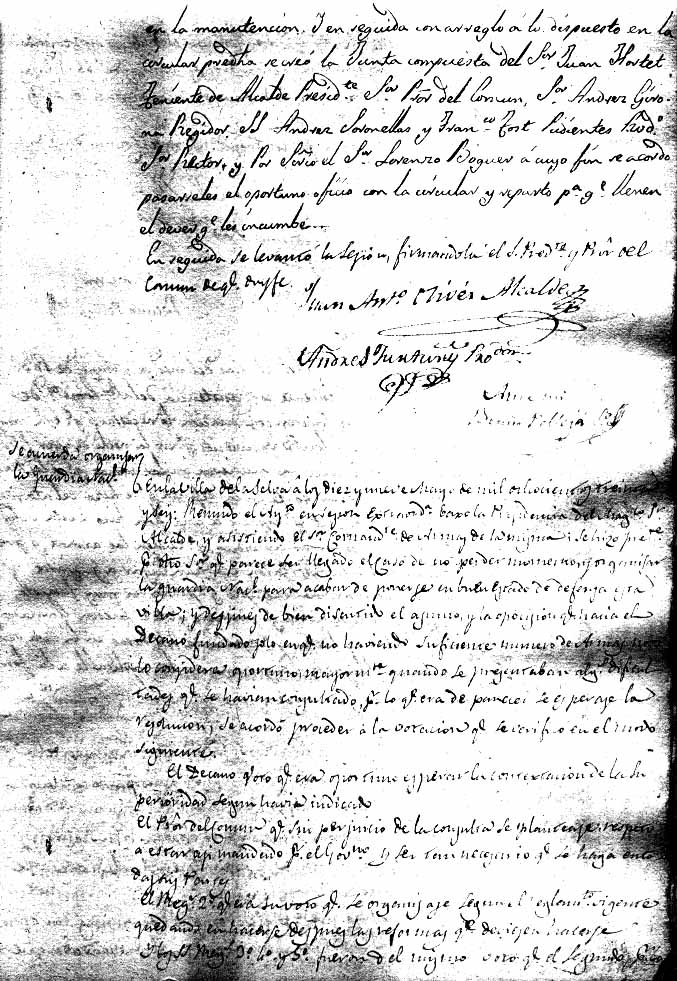 en la manutencion. Y en seguida con arreglo á lo dispuesto en la
circular predha se creó la Junta compuesta del Sor Juan Hortet
Teniente de Alcalde Presid.te Sor Pror del Comun, Sor Andrez Giro-
na Regidor SS Andrez Soronellas y Fran.co Tost Pudientes
Sor Rector, y Por Srio el Sor Lorenzo Boguer á cuyo fin se acordo
pasarseles el oportuno oficio con la circular y reparto pa qe llenen
el dever qe les incumbe.
En seguida se levantó la Sesion, firmandola el S. Presdte y Pror del
Comun de qe doy fe.
Juan Anto Olivér Alcalde
Andres
Ante mi
Se acuerda organizar
la Guardia Nacl
En la Villa de la Selva á los diez y nueve Mayo de mil ochocientos treinta
y seis: Reunido el Aymo en sesion Extraordra baxo la Presidencia del
Alcalde, y asistiendo el Sr Comandte de Armas de la misma; se hizo prete
pr dho Sr qe parece ser llegado el caso de no perder momento en organisar
la guardia Nacl para acabar de ponerse en buen estado de defensa esta
villa; y despues de bien discutido el asunto, y la oposicion qe hacia el
Decano fundado solo en qe no haviendo suficiente numero de Armas no
lo considera oportuno mayormte quando se presentaban algs dificul
tades qe se havian consultado, pr lo qe era de parecer se esperase la
resolucion; se acordó proceder á la votacion qe se verificó en el modo
siguiente.
El Decano votó qe era oportuno esperar la contextacion de la Su
perioridad segun havia indicado
El Pror del Comun qe sin perjuicio de la consulta se plantease respeto
a estar asi mandado pr el Govno y ser tan necesario qe se haga en
El Regr 2o qe era su voto qe se organisase segun el reglamto vigente
quedando en hacerse despues las reformas qe deviesen hacerse
Los SS Regs 3o 4o y 5o fueron del mismo voto qe el Segundo